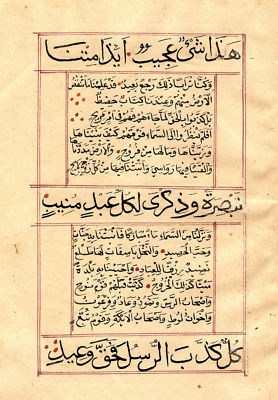 هذا شئ عجيب ائذا متنا
وكنا ترابا ذلك رجع بعيد قد علمنا ما تنقص
الارض منهم وعندنا كتاب حفيظ
بل كذبوا بالحق لما جاءهم فهم في امر مريج
افلم ينظروا الى السماء فوقهم كيف بنيناها
وزيناها وما لها من فروج والارض مددناها
والقينا فيها رواسي وانبتنا فيها من كل زوج بهيج
تبصرة وذكرى لكل عبد منيب
ونزلنا من السماء ماء مباركا فانبتنا به جنات
وحب الحصيد والنخل باسقات لها طلع
نضيد رزقا للعباد واحيينا به بلدة
ميتا كذلك الخروج كذبت قبلهم قوم نوح
واصحاب الرس وثمود وعاد وفرعون
واخوان لوط واصحاب الايكة وقوم تبع
كل كذب الرسل فحق وعيد